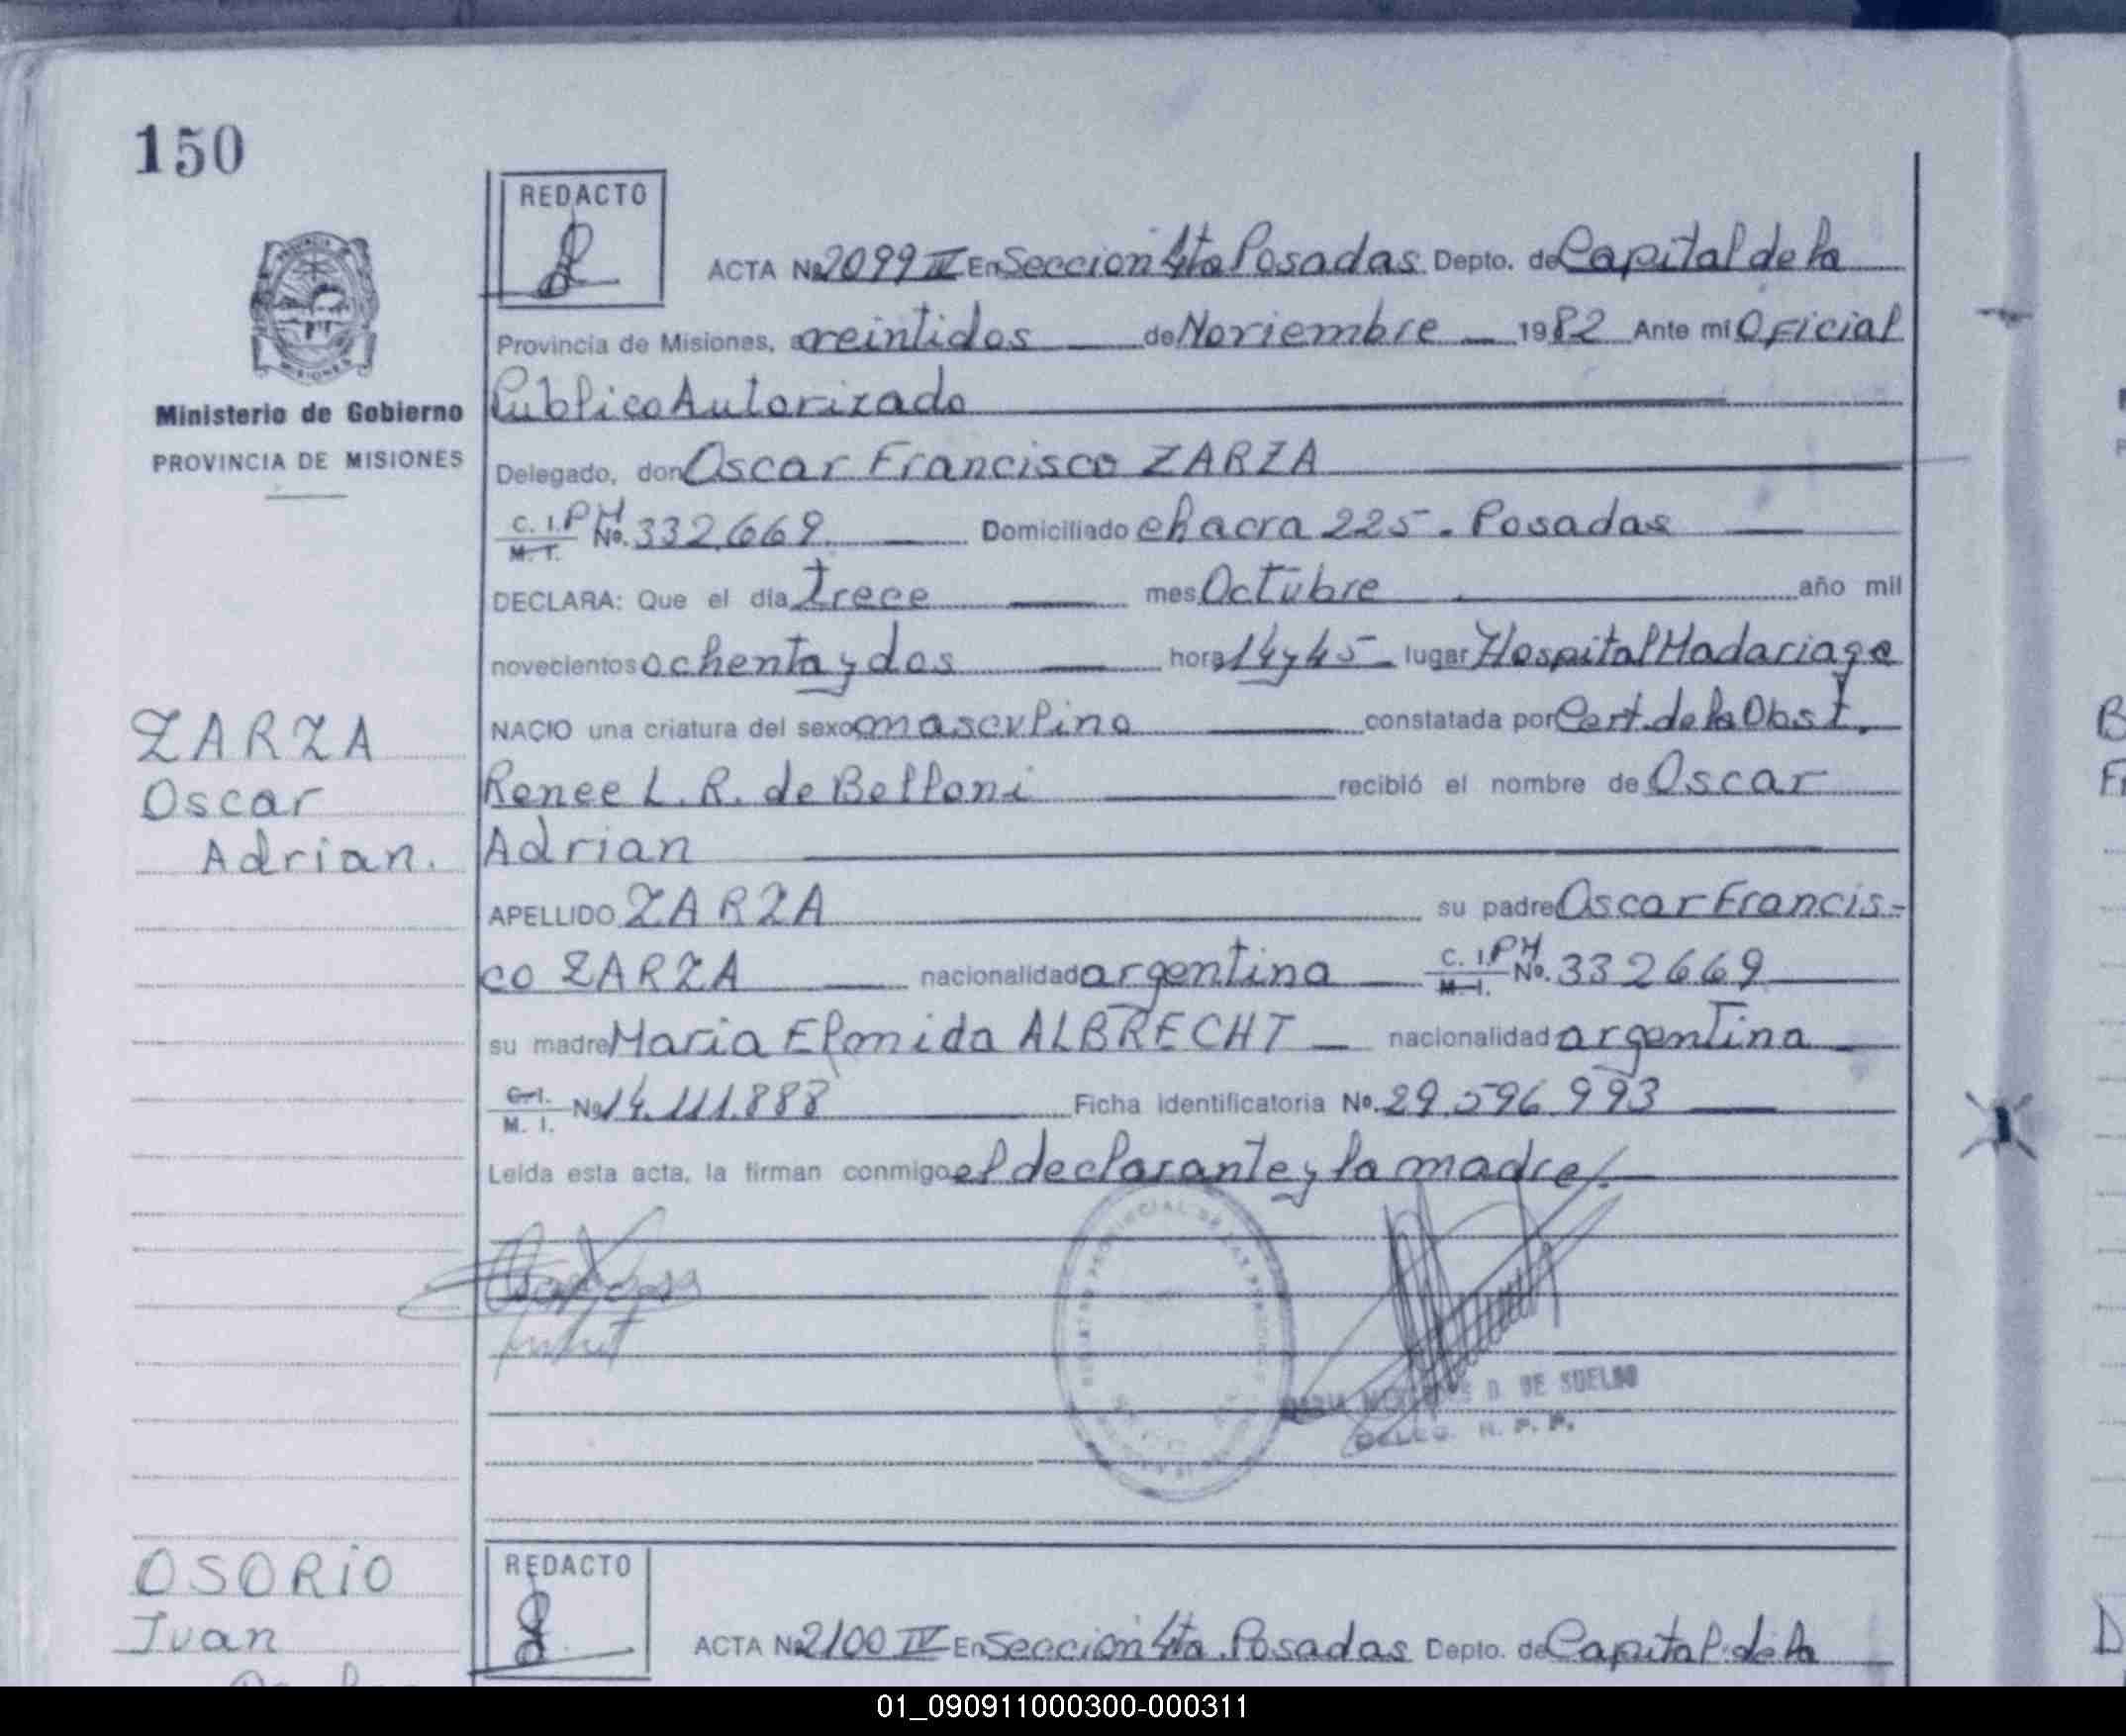 150
REDACTO
ACTA No 2099 IV En Sección 4ta Posadas Depto. de Capital de la
Provincia de Misiones, a veintidos de Noviembre 1982 Ante mi Oficial
Publico Autorizado
Ministerio de Gobierno
PROVINCIA DE MISIONES
Delegado, don Oscar Francisco ZARZA
C. I. PM No. 332.669 Domiciliado chacra 225 - Posadas
M. I.
DECLARA: Que el día trece mes Octubre año mil
novecientos ochenta y dos hora 14 y 45 lugar Hospital Madariaga
NACIO una criatura del sexo masculino constatada por Cert. de la Obst.
Renee L. R. de Belloni recibió el nombre de Oscar
Adrian
ZARZA
Oscar
Adrian.
APELLIDO ZARZA su padre Oscar Francis-
co ZARZA nacionalidad argentina C. I. PM No. 332669
M. I.
su madre Maria Elmida ALBRECHT nacionalidad argentina
C. I. No 14.111.888 Ficha identificatoria No. 29.596.993
M. I.
Leida esta acta, la firman conmigo el declarante y la madre.
D. DE SUELDO
DELEG. R. P. P.
OSORIO
Juan
REDACTO
ACTA No 2100 IV En Sección 4ta. Posadas Depto. de Capital de la
01_090911000300-000311